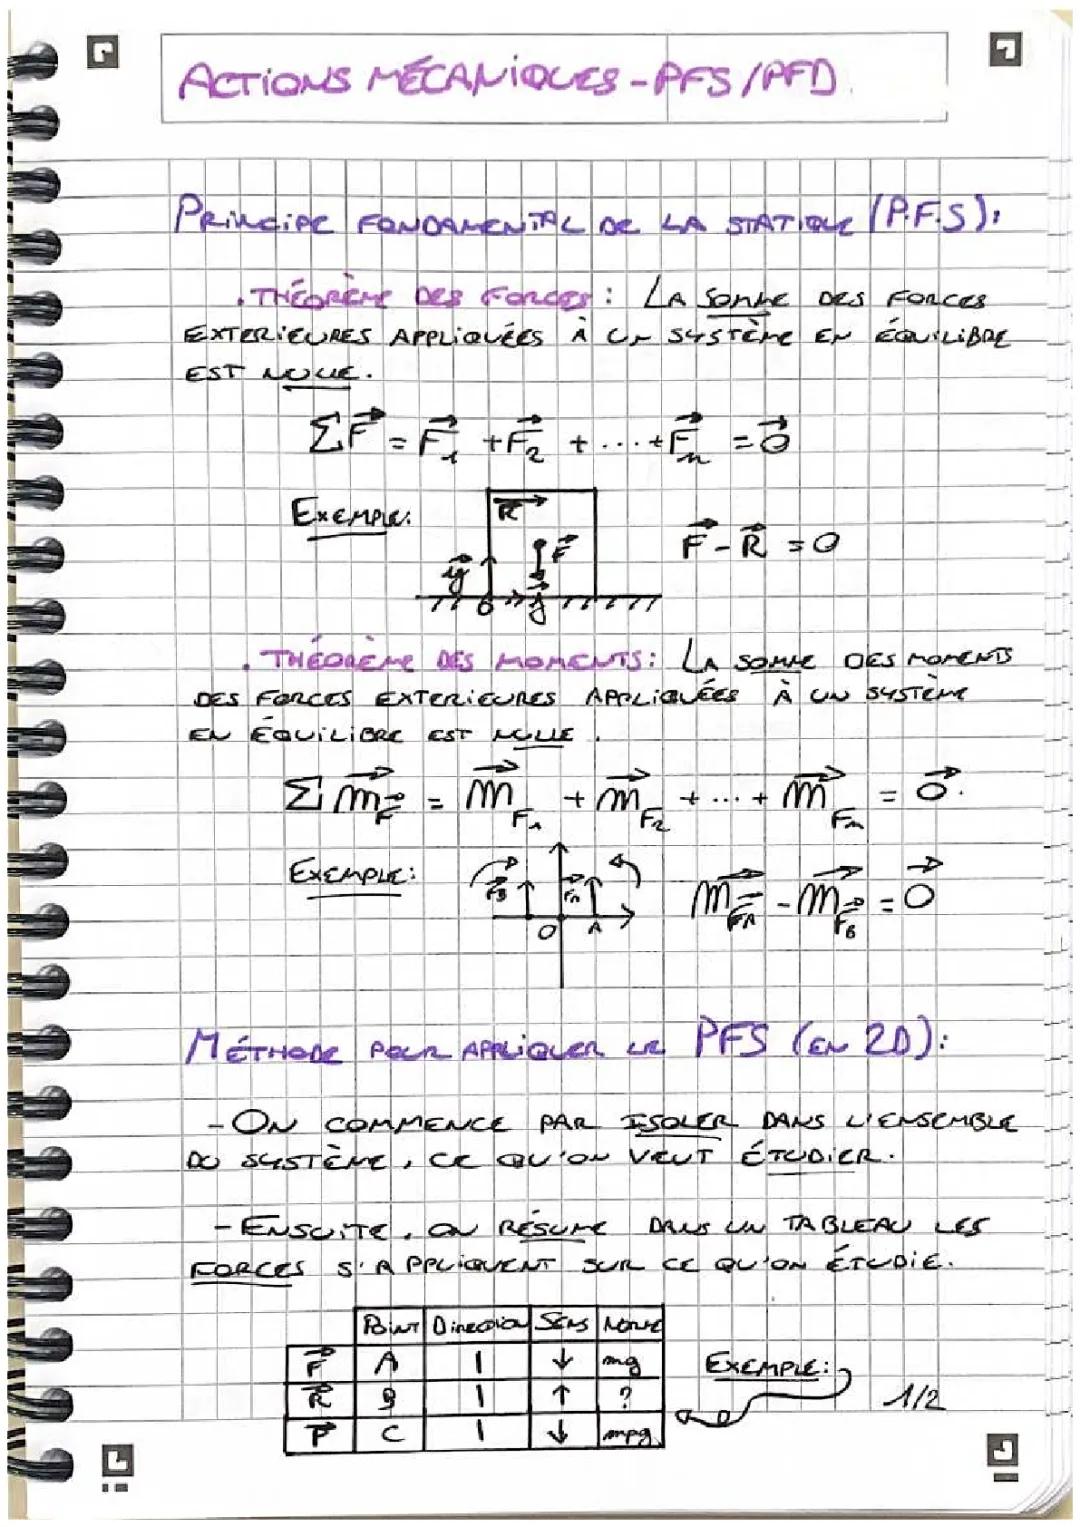 ACTIONS MÉCANIQUES - PFS/PFD
PRINCIPE FONDAMENTAL DE LA STATIQUE (P.F.S):
. THÉORÈME DES FORCES : LA SOMME DES FORCES
EXTERIEURES APPLIQUÉES À UN SYSTÈME EN ÉQUILIBRE
EST NULLE.
ΣF⃗ = F⃗₁ + F⃗₂ + ... + F⃗ₙ = 0⃗
EXEMPLE:
R⃗
F⃗
F⃗ - R⃗ = 0
y⃗
. THÉORÈME DES MOMENTS: LA SOMME DES MOMENTS
DES FORCES EXTERIEURES APPLIQUÉES À UN SYSTÈME
EN ÉQUILIBRE EST NULLE.
Σ m⃗ F⃗ = m⃗ F₁ + m⃗ F₂ + ... + m⃗ Fₙ = 0⃗.
EXEMPLE:
F⃗B F⃗A
m⃗ F⃗A - m⃗ F⃗B = 0⃗
O A
MÉTHODE POUR APPLIQUER LE PFS (EN 2D):
- ON COMMENCE PAR ISOLER DANS L'ENSEMBLE
DU SYSTÈME, CE QU'ON VEUT ÉTUDIER.
- ENSUITE, ON RÉSUME DANS UN TABLEAU LES
FORCES S'APPLIQUENT SUR CE QU'ON ÉTUDIE.
POINT Direction SENS NORME
F⃗ A | ↓ mg
EXEMPLE:
R⃗ B | ↑ ?
1/2
P⃗ C | ↓ mpg